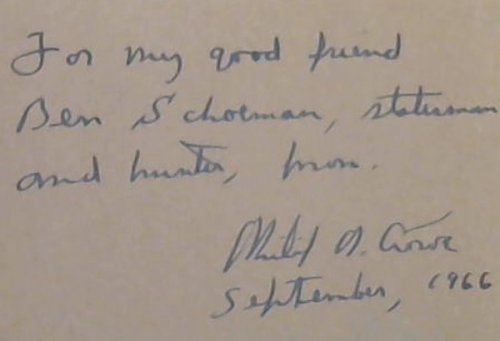 For my good friend
Ben Schoeman, statesman
and hunter, from.
Philip K. Crowe
September, 1966